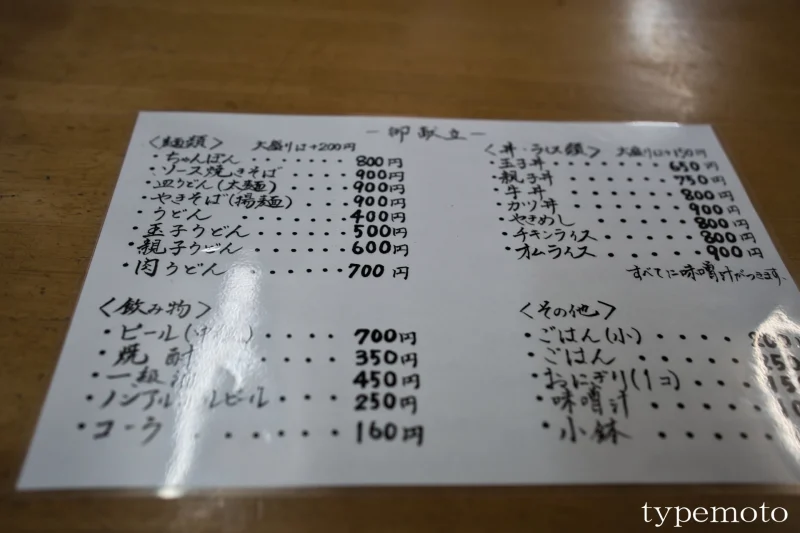 －御献立－
〈麺類〉 大盛りは+200円
・ちゃんぽん ・・・・・・・ 800円
・ソース焼きそば ・・・・・ 900円
・皿うどん(太麺) ・・・・・ 900円
・やきそば(揚麺) ・・・・・ 900円
・うどん ・・・・・・・・ 400円
・玉子うどん ・・・・・・ 500円
・親子うどん ・・・・・・ 600円
・肉うどん ・・・・・・・ 700円
〈丼・ライス類〉 大盛りは+150円
・玉子丼 ・・・・・・・ 650円
・親子丼 ・・・・・・・ 750円
・牛丼 ・・・・・・・ 800円
・カツ丼 ・・・・・・・ 900円
・やきめし ・・・・・・ 800円
・チキンライス ・・・・・ 800円
・オムライス ・・・・・ 900円
すべてに味噌汁がつきます。
〈飲み物〉
・ビール ・・・・ 700円
・焼酎 ・・・・・ 350円
・一級 ・・・・・ 450円
・ノンアルコールビール ・・・ 250円
・コーラ ・・・・・・ 160円
〈その他〉
・ごはん(小) ・・・・
・ごはん ・・・・・
・おにぎり(1コ) ・・・・
・味噌汁 ・・・・・
・小鉢 ・・・・・
typemoto